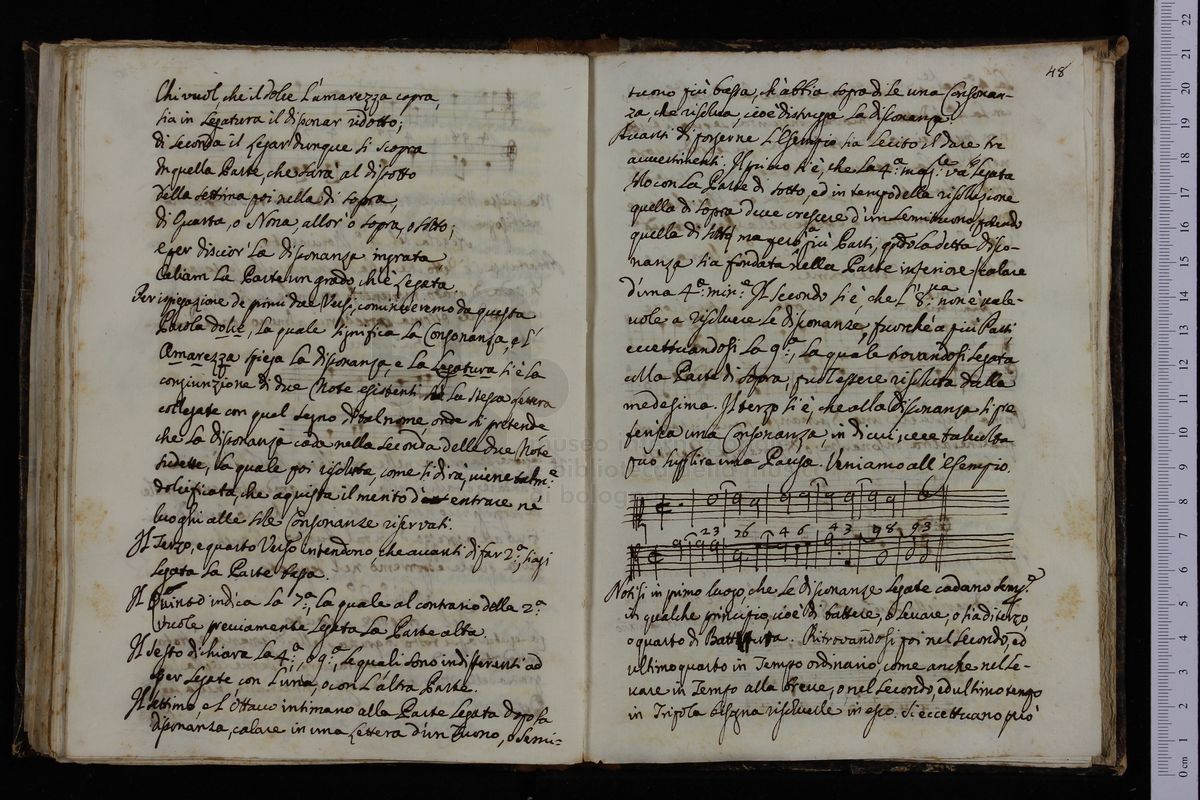 Chi vuol, che il dolce l'amarezza copra,
sia in legatura il disonar ridotto;
di seconda il legar dunque si scopra
in quella Parte, che sarà al disotto
della settima poi nella di sopra,
di Quarta, o Nona, allor' o sopra, o sotto;
e per discior la disonanza ingrata
Caliam la Parte un grado, ch'è legata.
Per ispiegazione de primi due Versi, cominceremo da questa
Parola dolce, la quale significa la Consonanza, e l'
Amarezza spiega la disonanza e la Legatura si è la
congiunzione di due Note esistenti la stessa lettera
collegate con quel segno di tal nome onde si pretende
che la disonanza cada nella seconda delle due Note
sudette, la quale poi risoluta, come si dirà, viene talm.e
dolcificata, che aquista il merito d' entrare ne
luoghi alle sole Consonanze riservati.
Il Terzo, e quarto Verso intendono che avanti di far 2.a siasi
legata la Parte bassa.
Il Quinto indica la 7.a, la quale al contrario della 2.a
vuole previamente legata la Parte alta.
Il Sesto dichiara la 4.a, o 9.a, le quali sono indifferenti ad
esser legate con l'una, o con l'altra Parte.
Il settimo, e l'Ottavo intimano alla Parte legata dopo la
disonanza, calare in una lettera d'un Tuono, o Semi-
48
tuono più bassa, ch'abbia sopra di se una Consonan-
za, che risolva, cioè distrugga la disonanza.
Avanti di porgerne l'Esempio sia lecito il dare tre
avvertimenti. Il primo si è, che la 4.a mag.re và legata
solo con la Parte di sotto, ed in tempo della risoluzione
quella di sopra deve crescere d'un semituono
quella di sotto ma però à più Parti, quando la detta diso-
nanza sia fondata nella Parte inferiore, calare
d'una 4.a min.e Il secondo si è, che l'8.va non è vale-
vole a risolvere le disonanze, fuorchè a più Parti
eccettuandosi la 9.a, la quale trovandosi legata
colla Parte di sopra, può essere risoluta dalla
medesima. Il terzo si è, che alla disonanza si pre-
ferisca una Consonanza, in di cui vece talvolta
può supplire una Pausa. Veniamo all'Esempio.
23 76 46 43 98 93
Notisi in primo luogo, che le disonanze legate cadano semp.e
in qualche principio, cioè di battere, o levare, o sia di terzo,
o quarto di Battuta. Ritrovandosi poi nel secondo, ed
ultimo quarto in Tempo ordinario, come anche nel Le-
vare in Tempo alla breve, o nel secondo, ed ultimo tempo
in Tripola bisogna risolverle in esso. Si eccettuano però